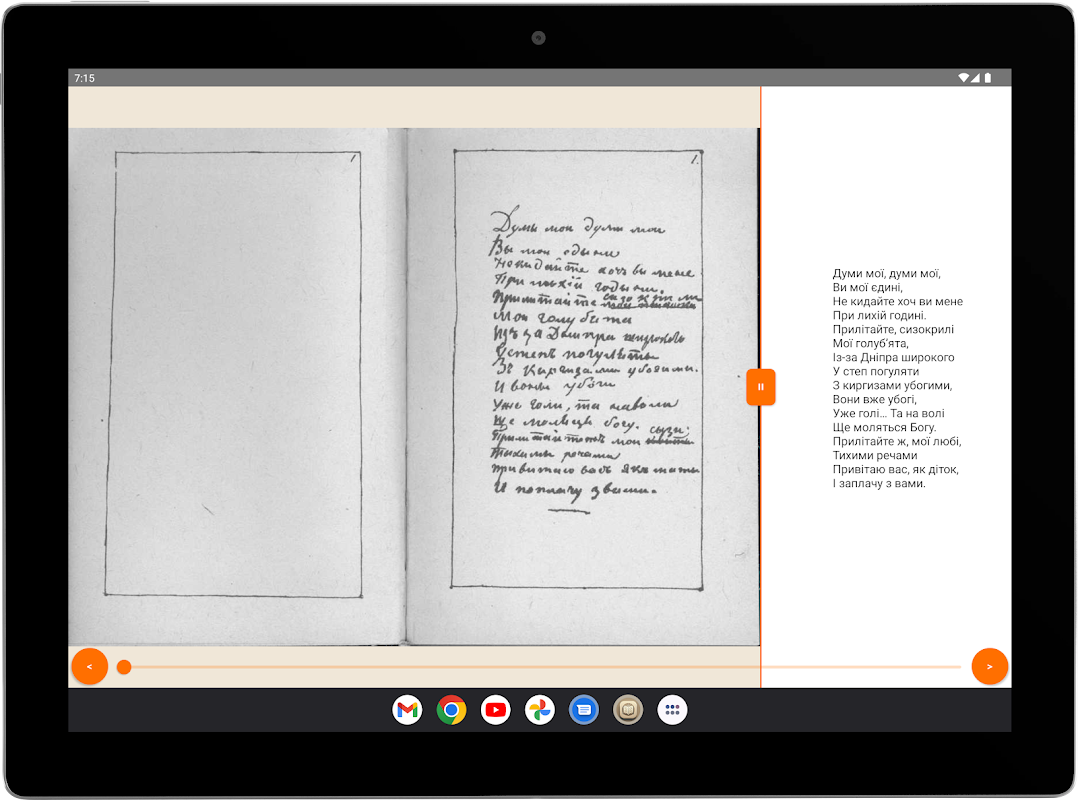 7:15
1
1.
Думы мои думы мои
Вы мои едыни
Некидайте хочь вы мене
При лыхій годыни.
Прилитайте сизокрили
Мои голубята
Изъ за Днипра широкого
Устепъ погуляты
Зъ Киргизами убогими.
И вони убоги
Уже голи, та наволи
Ще молятця богу.
Прилитайтежъ мои
Тыхими речами
Привитаю васъ
И поплачу звами.
Думи мої, думи мої,
Ви мої єдині,
Не кидайте хоч ви мене
При лихій годині.
Прилітайте, сизокрилі
Мої голуб'ята,
Із-за Дніпра широкого
У степ погуляти
З киргизами убогими,
Вони вже убогі,
Уже голі... Та на волі
Ще моляться Богу.
Прилітайте ж, мої любі,
Тихими речами
Привітаю вас, як діток,
І заплачу з вами.